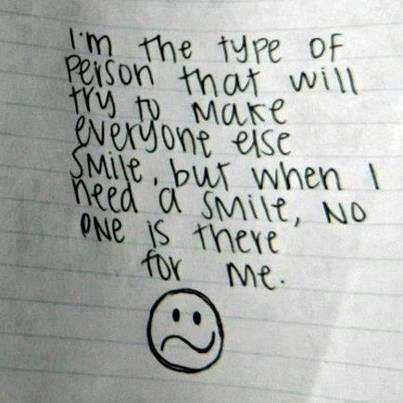 I'm the type of
person that will
try to make
everyone else
smile, but when I
need a smile, no
one is there
for me.